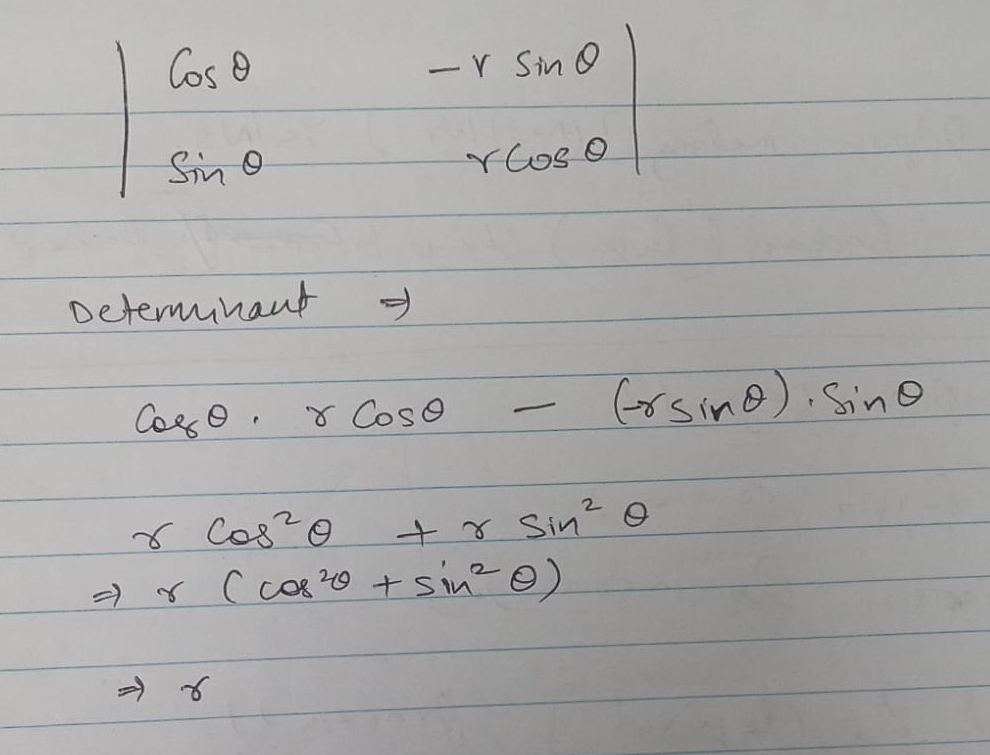 | Cos θ   -r Sin θ |
| Sin θ   r Cos θ |
Determinant ⇒
Cos θ . r Cos θ - (-r sin θ) . Sin θ
r Cos² θ + r Sin² θ
⇒ r (cos² θ + sin² θ)
⇒ r